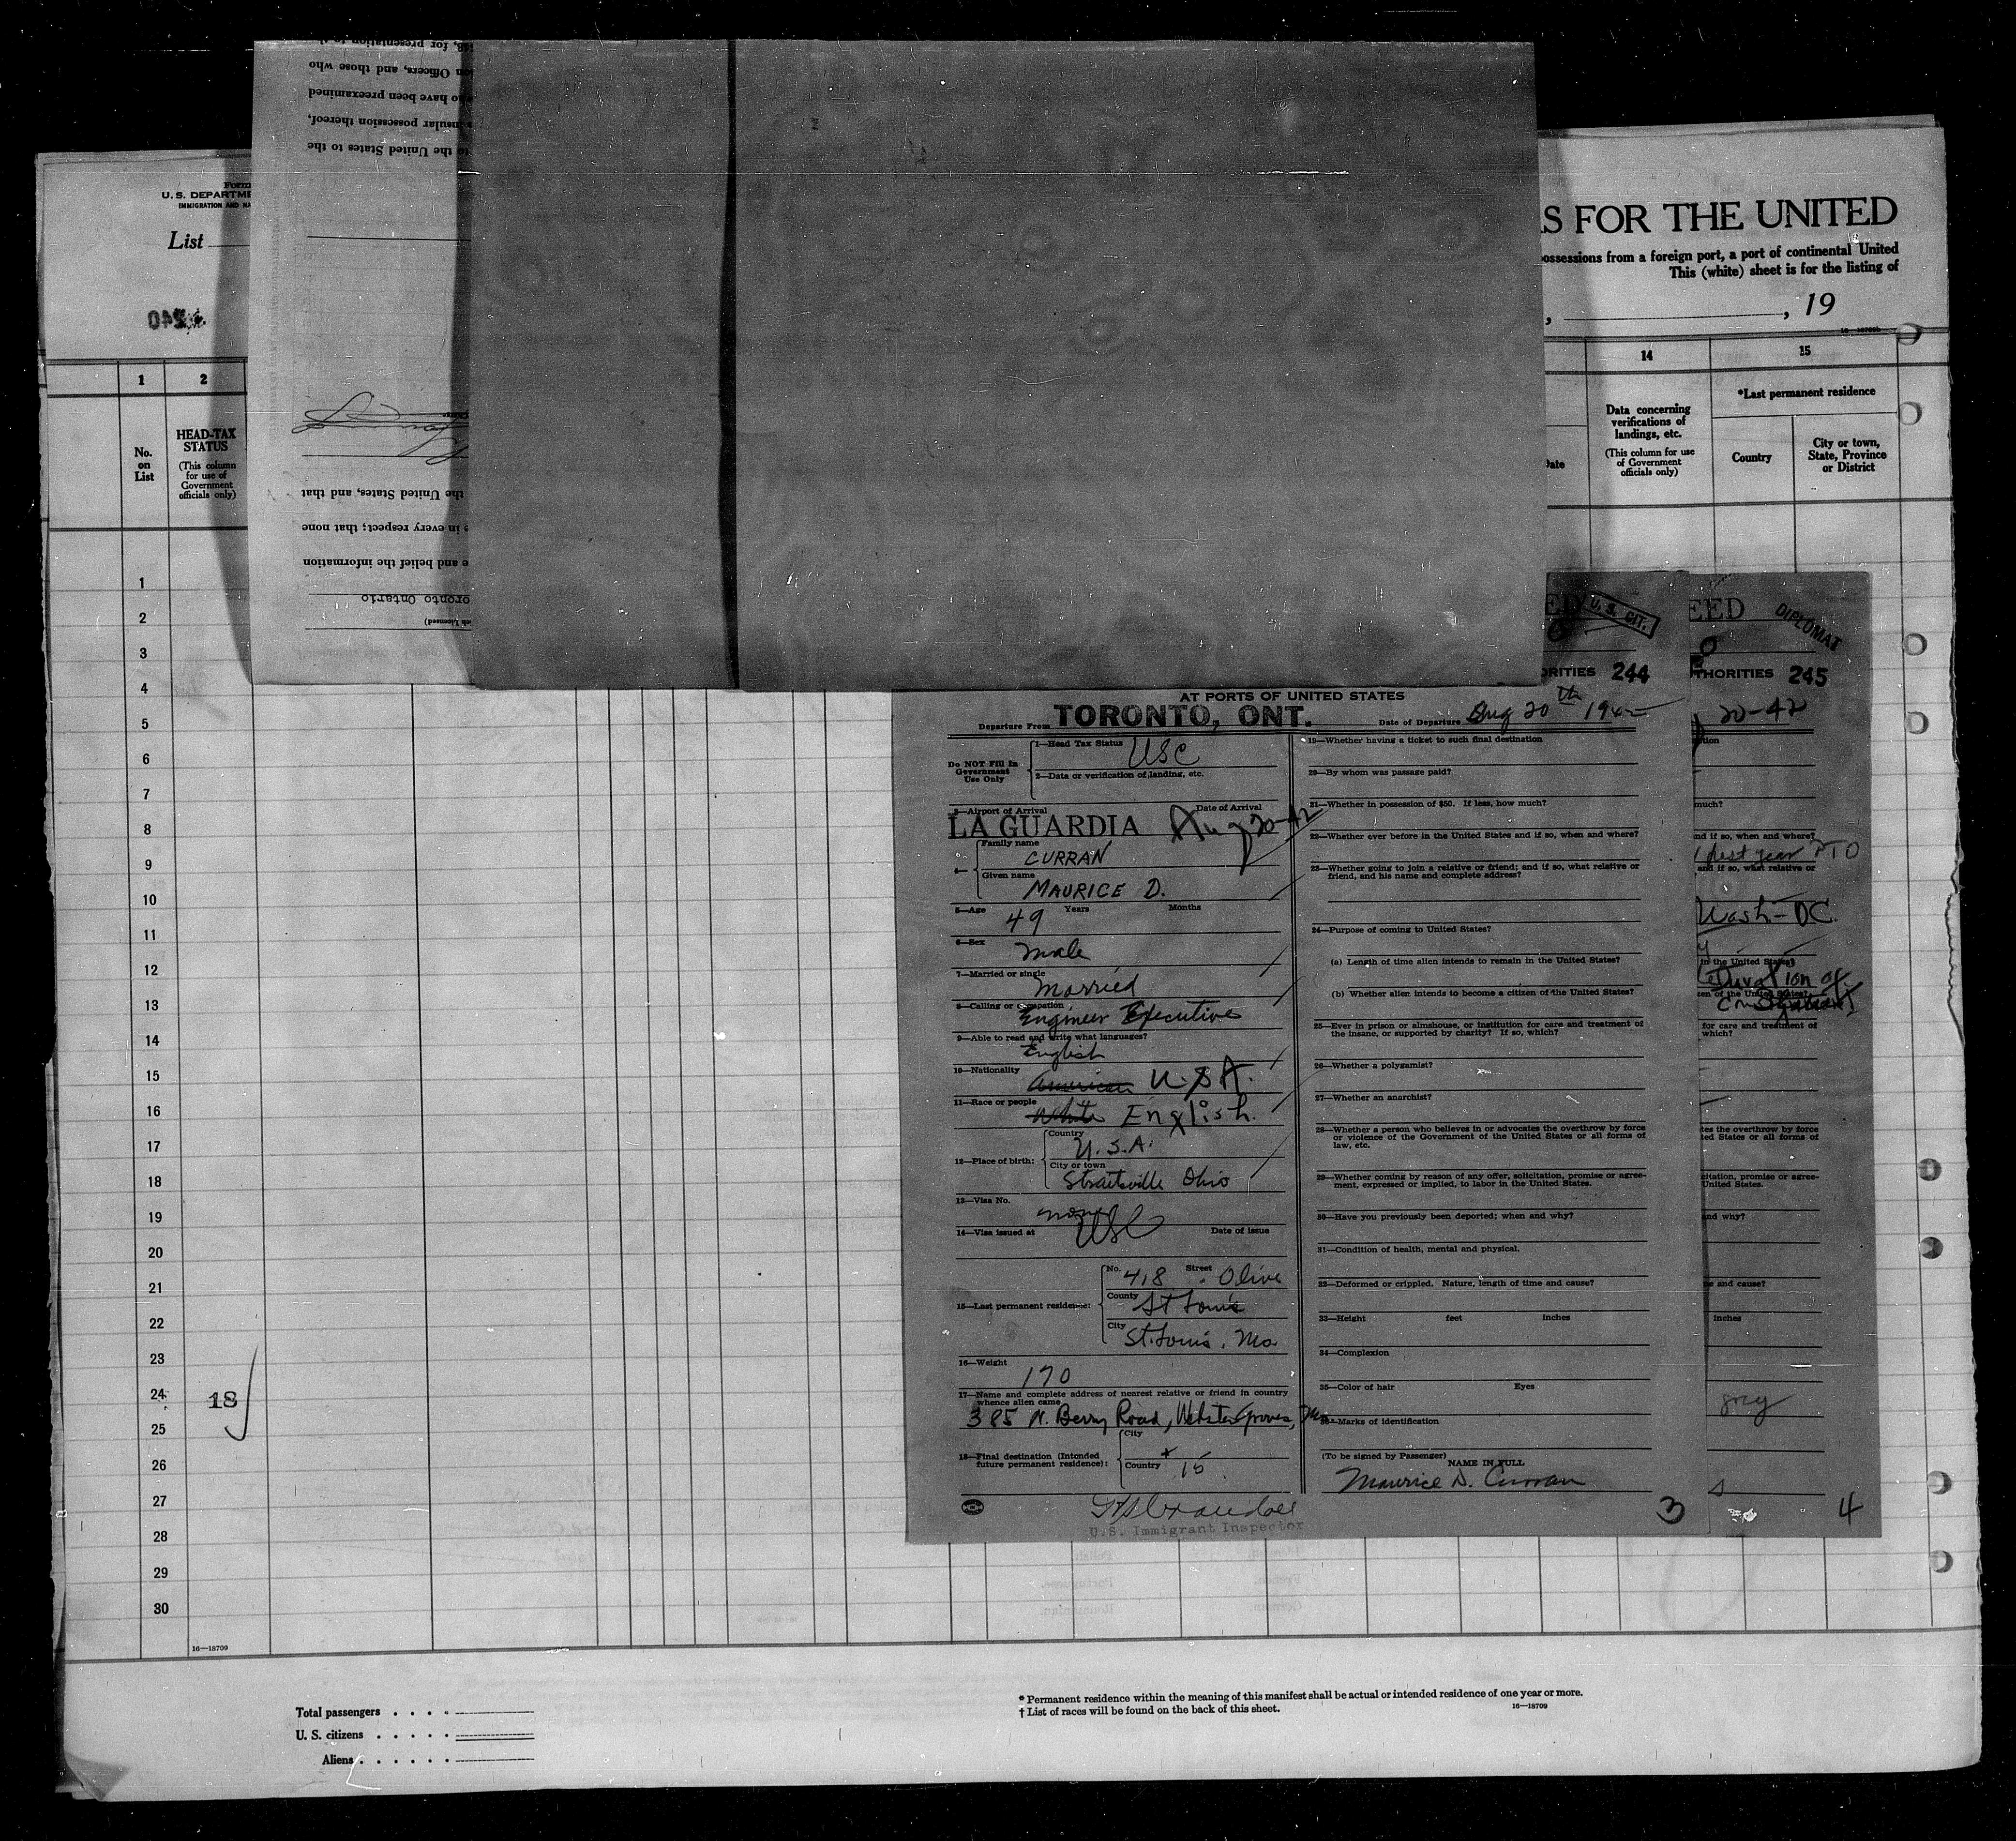 Form
U. S. DEPARTME
IMMIGRATION AND NA
List
240
S FOR THE UNITED
ossessions from a foreign port, a port of continental United
This (white) sheet is for the listing of
, 19
16—18709b
48, for presentation
on Officers, and those who
ho have been preexamined
insular possession thereof,
to the United States to the
the United States, and that
e in every respect; that none
e and belief the information
oronto Ontario
ch Licensed)
1
2
14
15
No.
on
List
HEAD-TAX
STATUS
(This column
for use of
Government
officials only)
Date
Data concerning
verifications of
landings, etc.
(This column for use
of Government
officials only)
*Last permanent residence
Country
City or town,
State, Province
or District
1
2
3
4
5
6
7
8
9
10
11
12
13
14
15
16
17
18
19
20
21
22
23
24
25
26
27
28
29
30
18
16—18709
U. S. CIT.
ORITIES 244
AT PORTS OF UNITED STATES
Departure From TORONTO, ONT.
Date of Departure Aug 20th 1942
Do NOT Fill In
Government
Use Only
1—Head Tax Status USC
2—Data or verification of landing, etc.
3—Airport of Arrival Date of Arrival
LA GUARDIA Aug 20-42
4— Family name
CURRAN
Given name
MAURICE D.
5—Age 49 Years Months
6—Sex
Male
7—Married or single
Married
8—Calling or occupation
Engineer Executive
9—Able to read and write what languages?
English
10—Nationality
American U.S.A.
11—Race or people
White English.
12—Place of birth:
Country
U.S.A.
City or town
Straitsville Ohio
13—Visa No.
none
14—Visa issued at USC Date of issue
15—Last permanent residence:
No. 418 Street Olive
County St Louis
City St. Louis, Mo
16—Weight
170
17—Name and complete address of nearest relative or friend in country
whence alien came
385 N. Berry Road, Webster Groves, Mo
18—Final destination (Intended
future permanent residence):
City
Country 15
U.S. Immigrant Inspector
19—Whether having a ticket to such final destination
20—By whom was passage paid?
21—Whether in possession of $50. If less, how much?
22—Whether ever before in the United States and if so, when and where?
23—Whether going to join a relative or friend; and if so, what relative or
friend, and his name and complete address?
24—Purpose of coming to United States?
(a) Length of time alien intends to remain in the United States?
(b) Whether alien intends to become a citizen of the United States?
25—Ever in prison or almshouse, or institution for care and treatment of
the insane, or supported by charity? If so, which?
26—Whether a polygamist?
27—Whether an anarchist?
28—Whether a person who believes in or advocates the overthrow by force
or violence of the Government of the United States or all forms of
law, etc.
29—Whether coming by reason of any offer, solicitation, promise or agree-
ment, expressed or implied, to labor in the United States.
30—Have you previously been deported; when and why?
31—Condition of health, mental and physical.
32—Deformed or crippled. Nature, length of time and cause?
33—Height feet inches
34—Complexion
35—Color of hair Eyes
36—Marks of identification
(To be signed by Passenger)
NAME IN FULL
Maurice D. Curran
3
EED
DIPLOMAT
THORITIES 245
20-42
tion
much?
nd if so, when and where?
last year PTO
and if so, what relative or
Wash-DC.
in the United States?
Duration of
zen of the United States?
for care and treatment of
which?
tes the overthrow by force
ted States or all forms of
citation, promise or agree-
United States.
nd why?
e and cause?
inches
grey
4
Total passengers . . . .
U. S. citizens . . . . .
Aliens . . . . . .
* Permanent residence within the meaning of this manifest shall be actual or intended residence of one year or more.
† List of races will be found on the back of this sheet.
16—18709